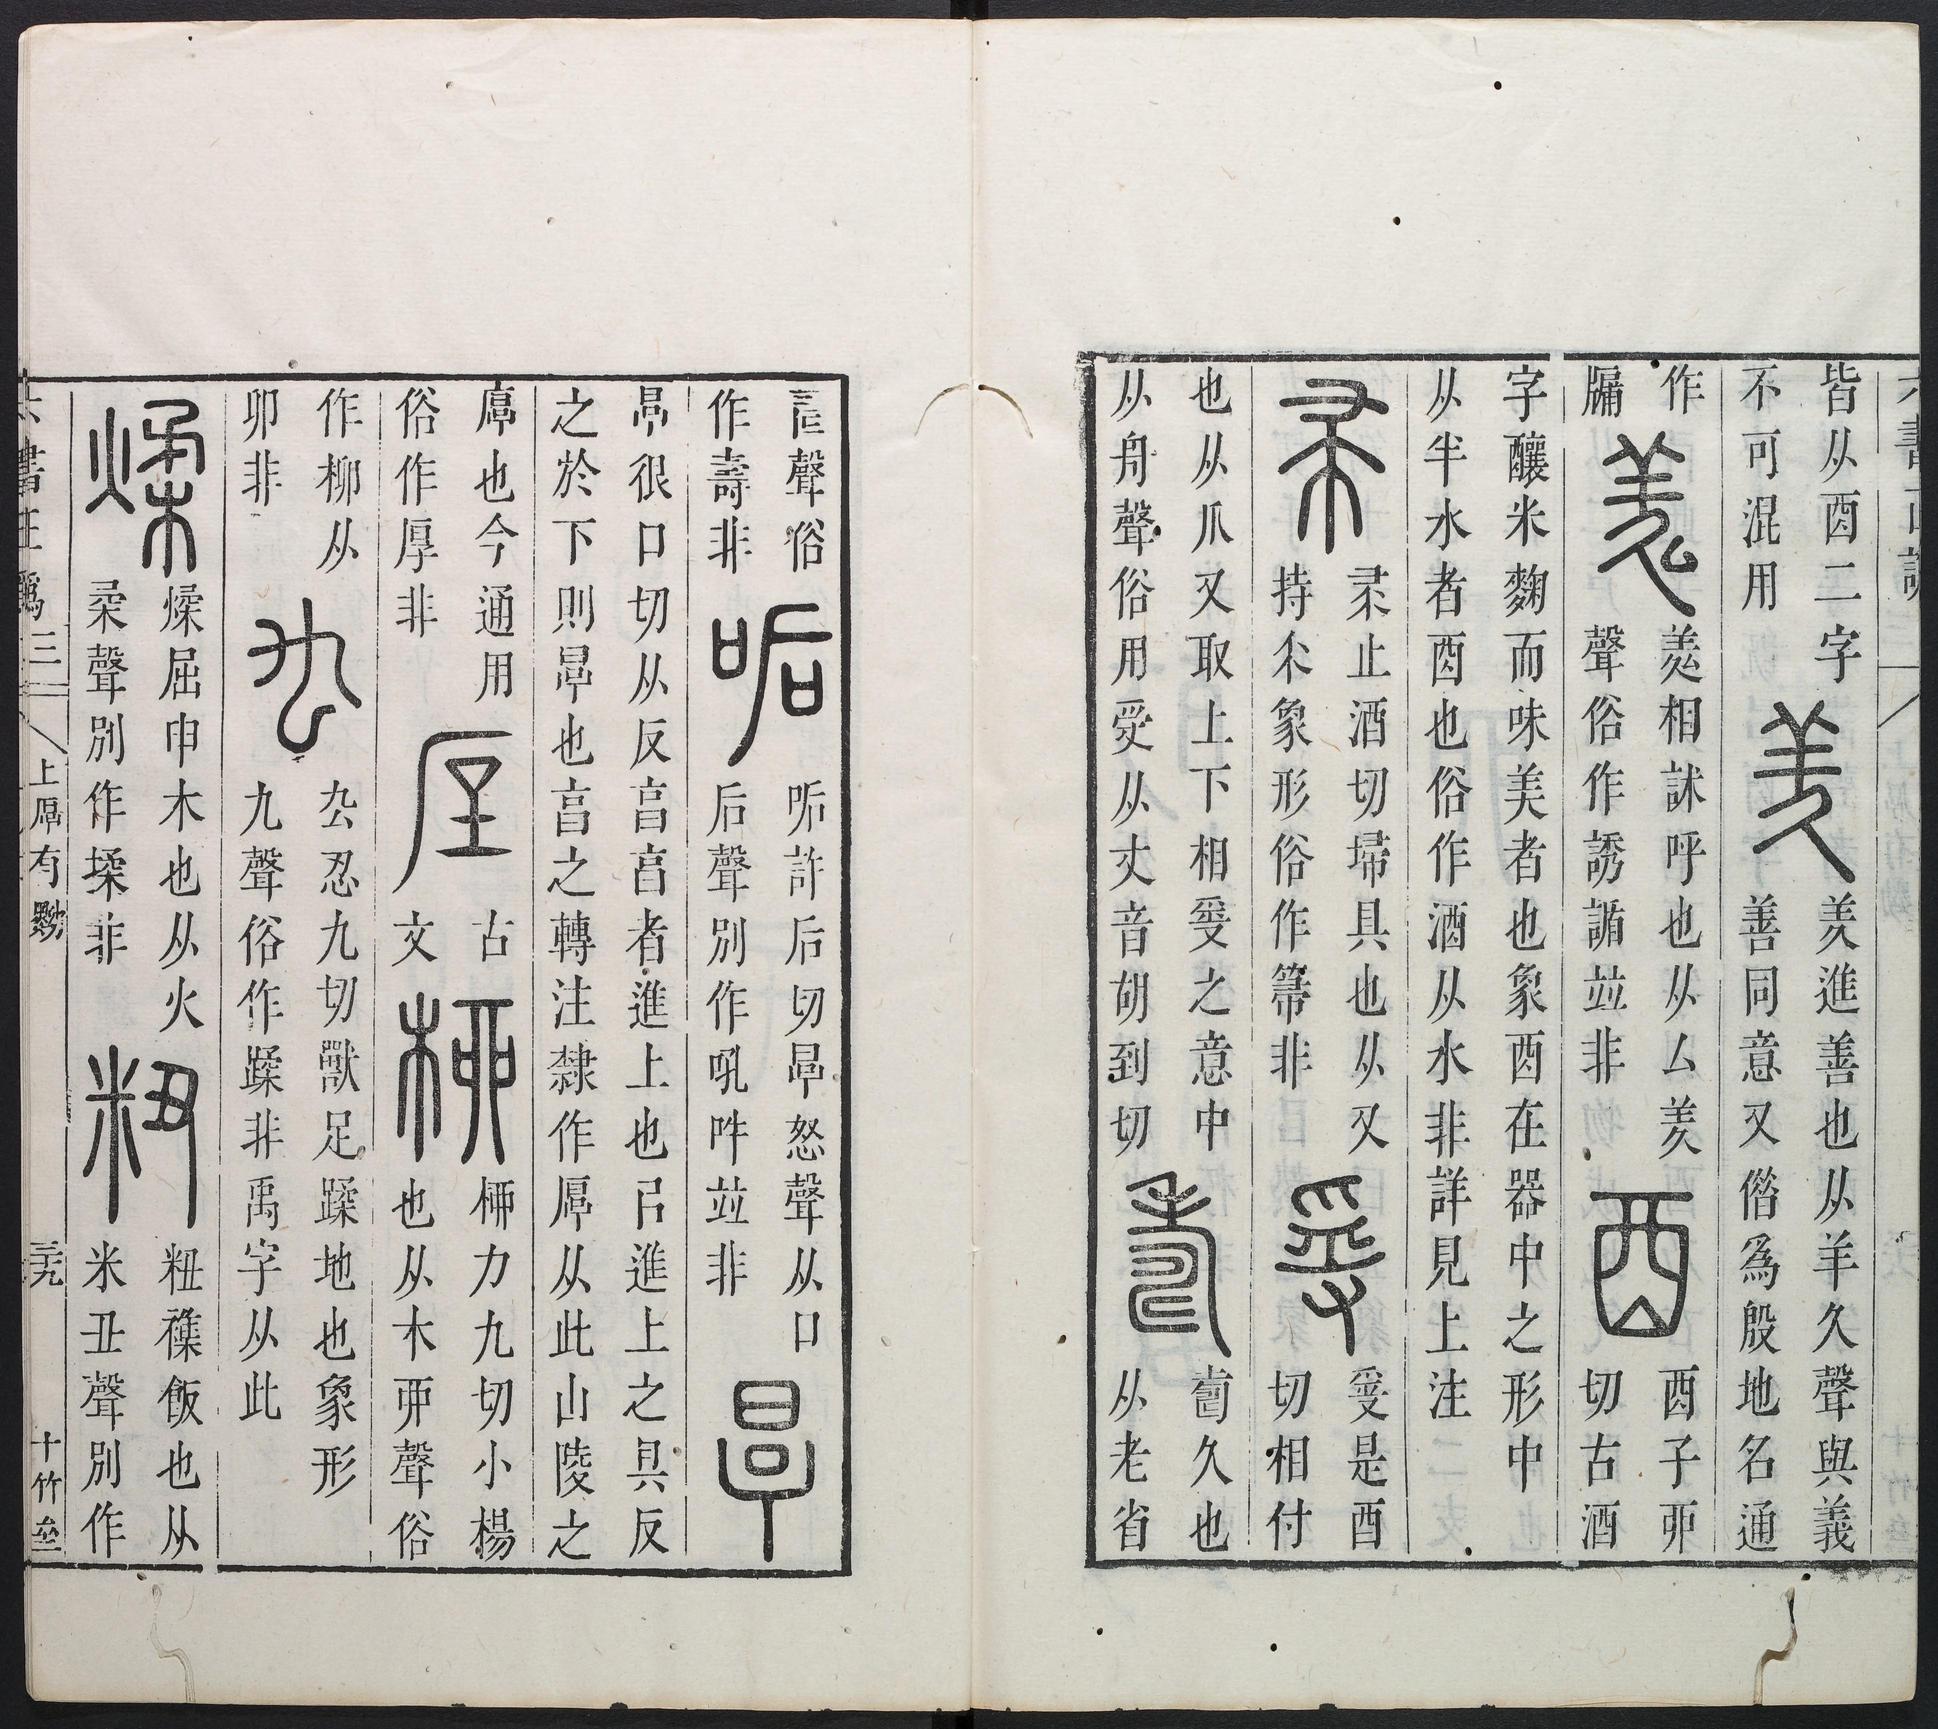 皆从酉二字
不可混用
羑
羑進善也从羊久聲與義
善同意又偺爲殷地名通
作
牖
羑相訹呼也从厶羑
聲俗作誘䛻竝非
酉
酉子丣
切古酒
字釀米麴而味美者也象酉在器中之形中
从半水者酉也俗作酒从水非詳見上注
帚
帚止酒切埽具也从又
持尒象形俗作箒非
受
受是酉
切相付
也从爪又取上下相受之意中
从舟聲俗用受从丈音胡到切
壽久也
从老省
聲俗
作壽非
㖃
㖃許后切㫗怒聲从口
后聲別作吼吽竝非
㫗
㫗很口切从反㐭㐭者進上也㠯進上之具反
之於下則㫗也㐭之轉注隸作厚从此山陵之
厚也今通用
俗作厚非
垕
古
文
桺
桺力九切小楊
也从木丣聲俗
作柳从
卯非
厹
厹忍九切獸足蹂地也象形
九聲俗作蹂非禹字从此
煣
煣屈申木也从火
柔聲別作揉非
粈
粈䊞飯也从
米丑聲別作
六書正譌
三
上厚有黝
三九
十竹齋